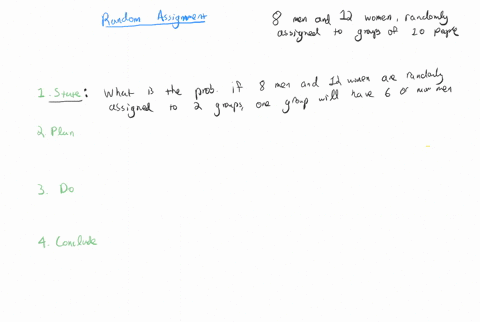 Random Assignment
8 men and 12 women, randomly
assigned to groups of 10 people
1. State: What is the prob. if 8 men and 12 women are randomly
assigned to 2 groups, one group will have 6 or more men
2. Plan
3. Do
4. Conclude